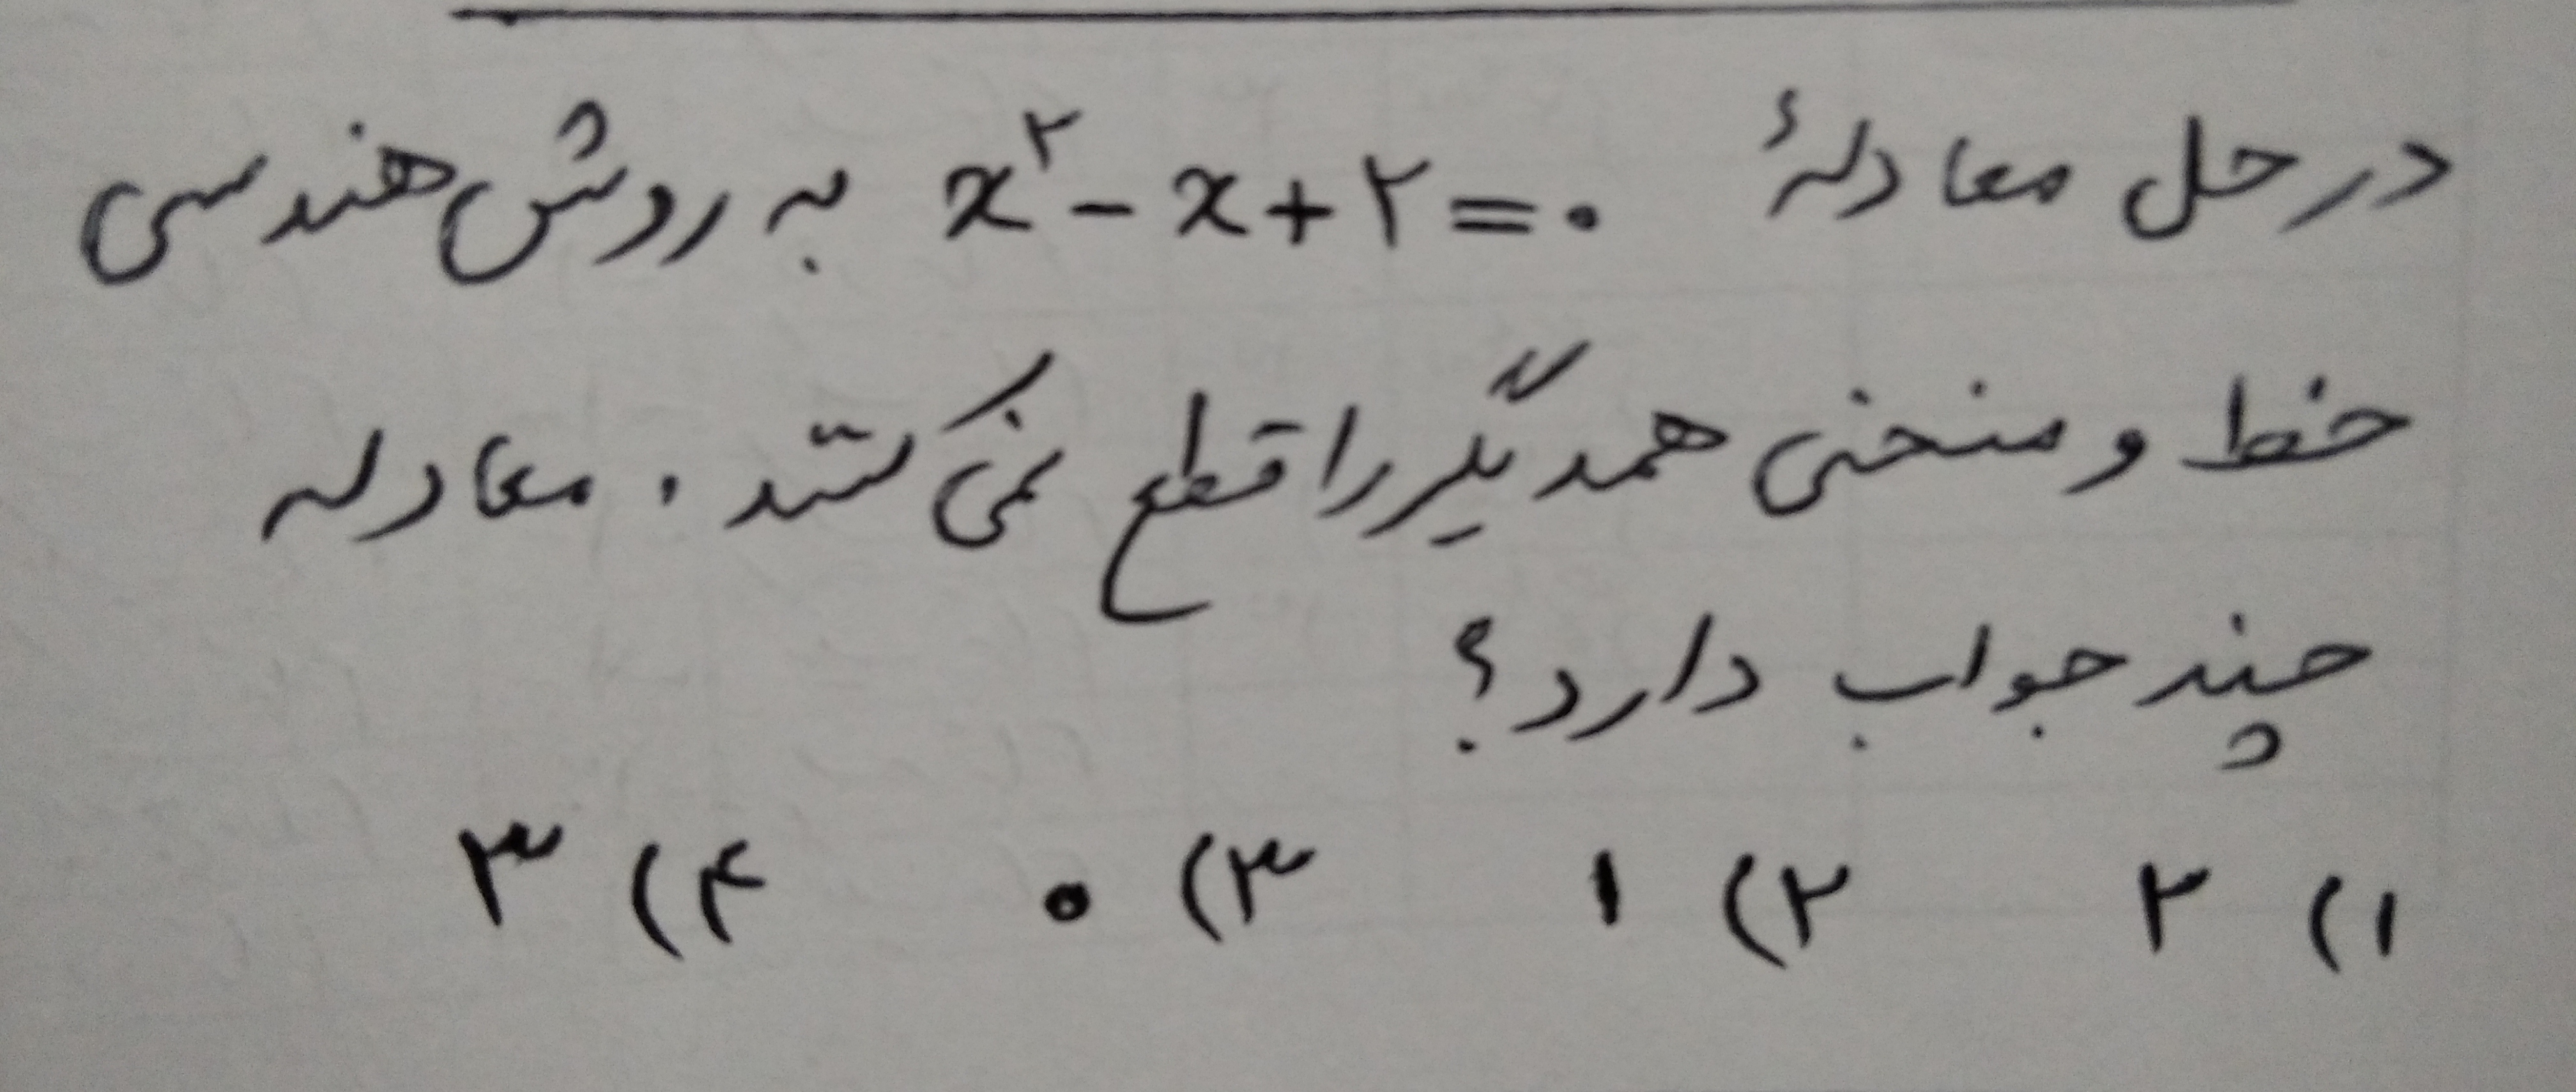 در حل معادلهٔ x² - x + ۲ = ۰ به روش هندسی
خط و منحنی همدیگر را قطع نمی‌کنند. معادله
چند جواب دارد؟
۱) ۲ ۲) ۱ ۳) ۰ ۴) ۳